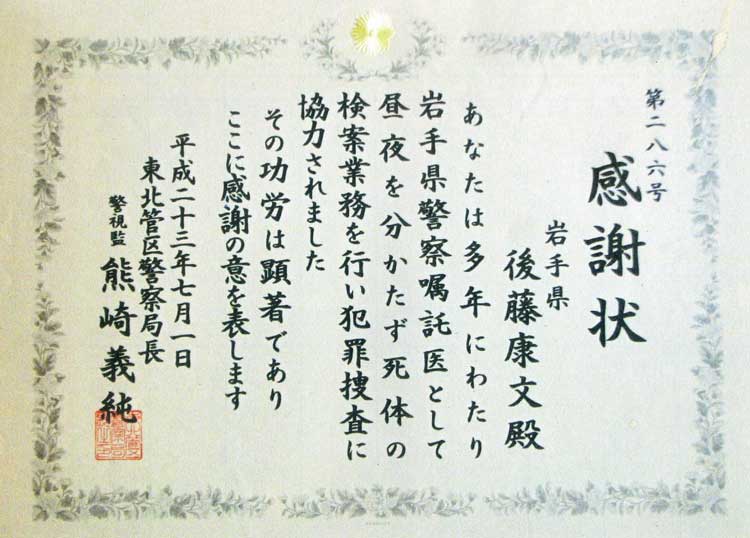 第二八六号
感謝状
岩手県
後藤康文殿
あなたは多年にわたり
岩手県警察嘱託医として
昼夜を分かたず死体の
検案業務を行い犯罪捜査に
協力されました
その功労は顕著であり
ここに感謝の意を表します
平成二十三年七月一日
東北管区警察局長
警視監 熊崎義純